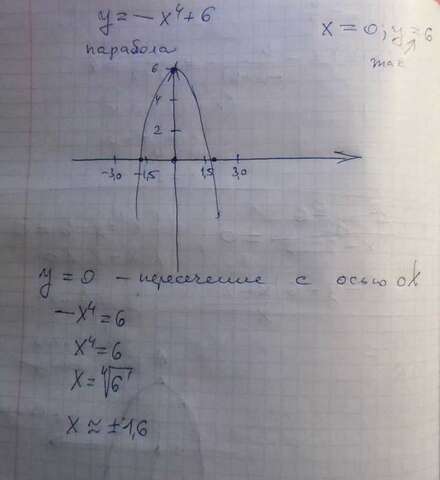 y = -x⁴+6
x = 0; y = 6
парабола
max
6
4
2
-3,0 -1,5 1,5 3,0
y = 0 - пересечение с осью OX
-x⁴ = 6
x⁴ = 6
x = ⁴√6
x ≈ ±1,6